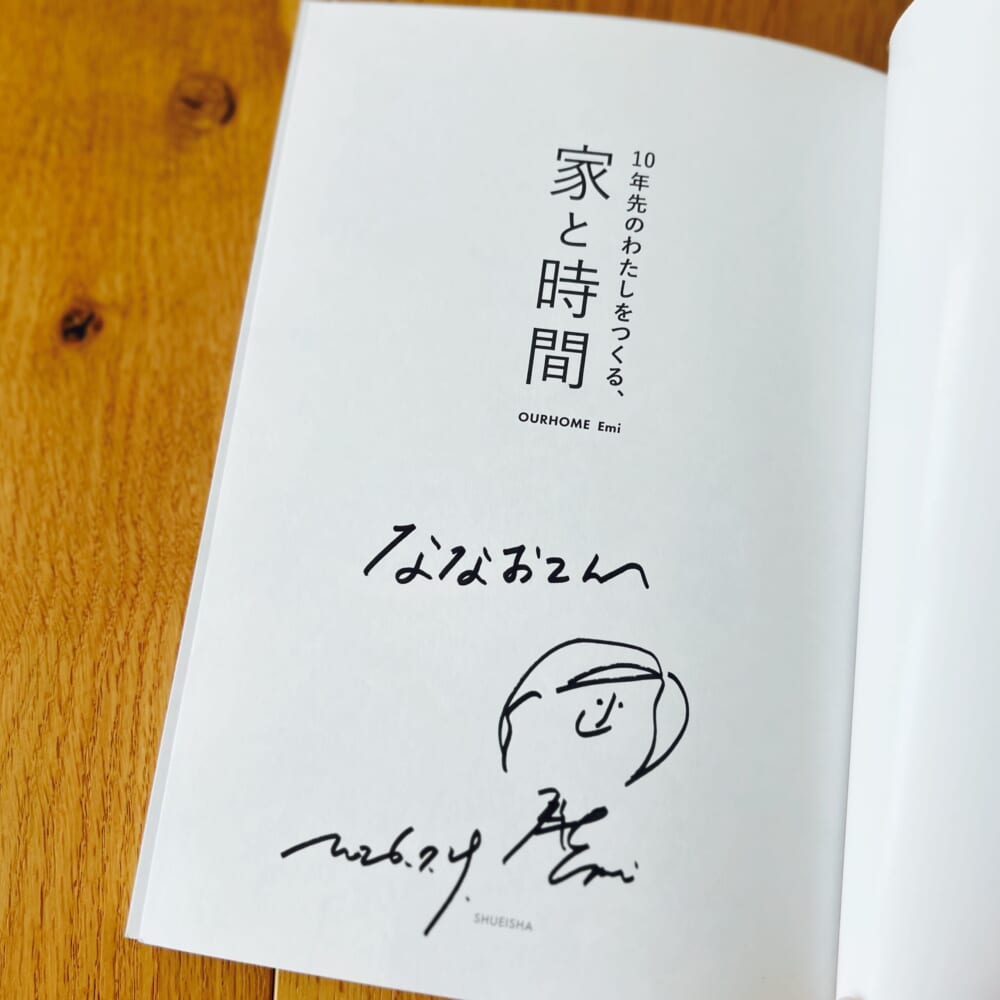 10年先のわたしをつくる、
家と時間
OURHOME Emi
ななおさんへ
2026.7.4.
Emi
SHUEISHA